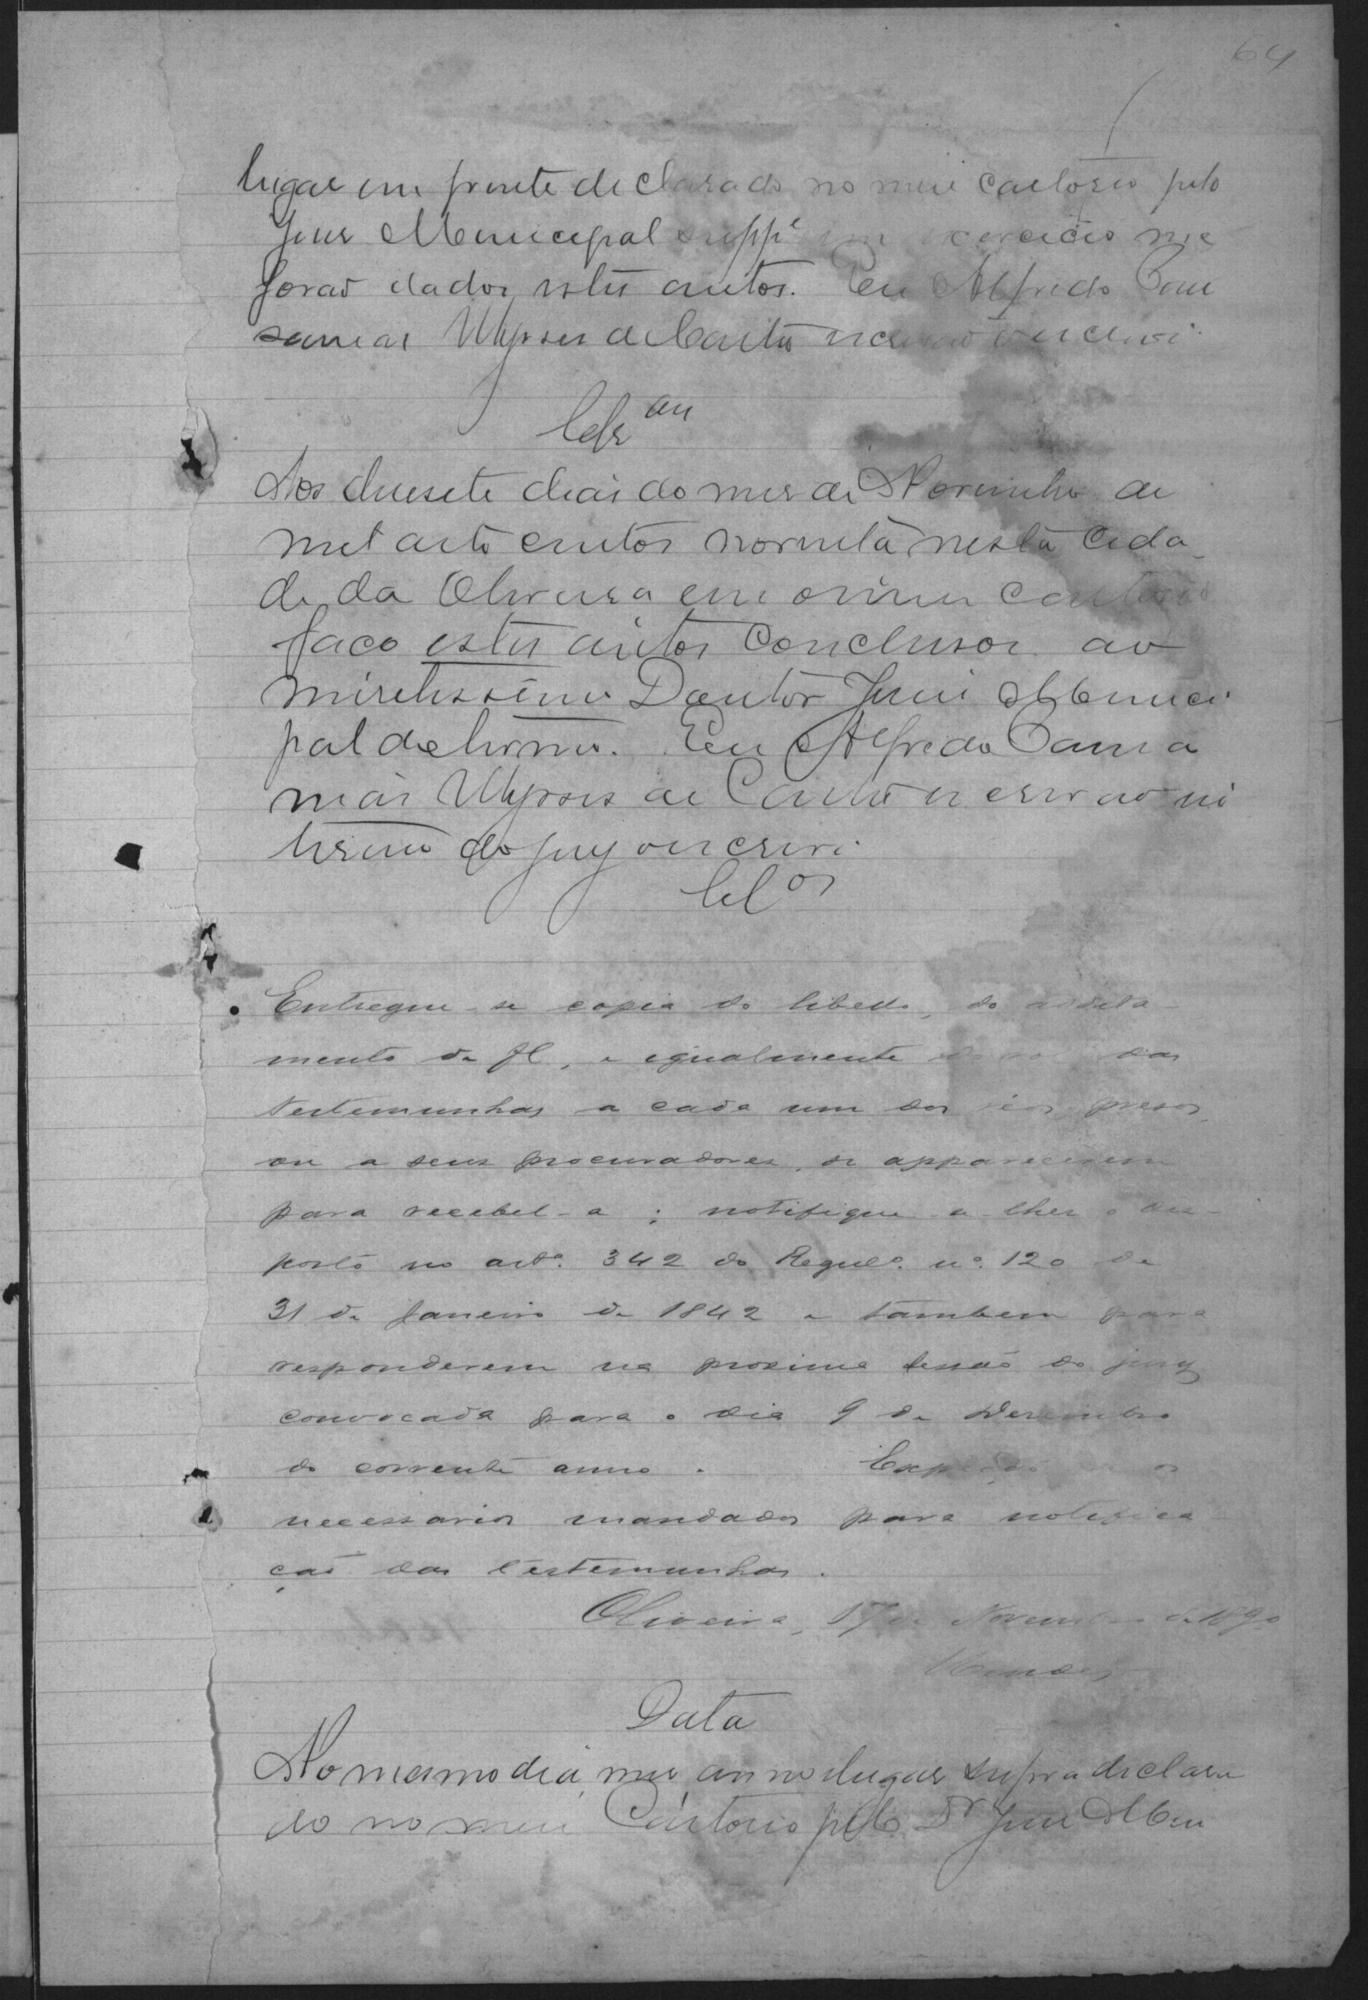 64
lugar em frente declarado no meu cartorio pelo
Juiz Municipal supp.e em exercicio me
forão dados estes autos. Eu Alfredo Cam
Ulysses de Castro escrivão o escrevi.
Cls.ão
Aos desesete dias do mes de Novembro de
mil oito centos noventa nesta Cida
de da Oliveira em o meu cartorio
faço estes autos conclusos ao
meretissimo Doutor Juis Munici
pal do termo. Eu Alfredo
Ulysses de Castro escrivão in
terino do jury o escrevi.
Cl.os
Entregue-se copia do libello, do addita-
mento de fl., e igualmente do rol das
testemunhas a cada um dos réos presos,
ou a seus procuradores, se apparecerem
para recebel-a; notifique-a-lhes o dis-
posto no art.o 342 do Regul.o n.o 120 de
31 de Janeiro de 1842 e tambem para
responderem na proxima sessão do jury
convocada para o dia 9 de Dezembro
do corrente anno. Expeção-se os
necessarios mandados para notifica
ção das testemunhas.
Oliveira, 17 de Novembro de 1890
Mendes
Data
No mesmo dia, mes anno lugar supra declara
do no meu Cartorio pelo Dr Juis Mu